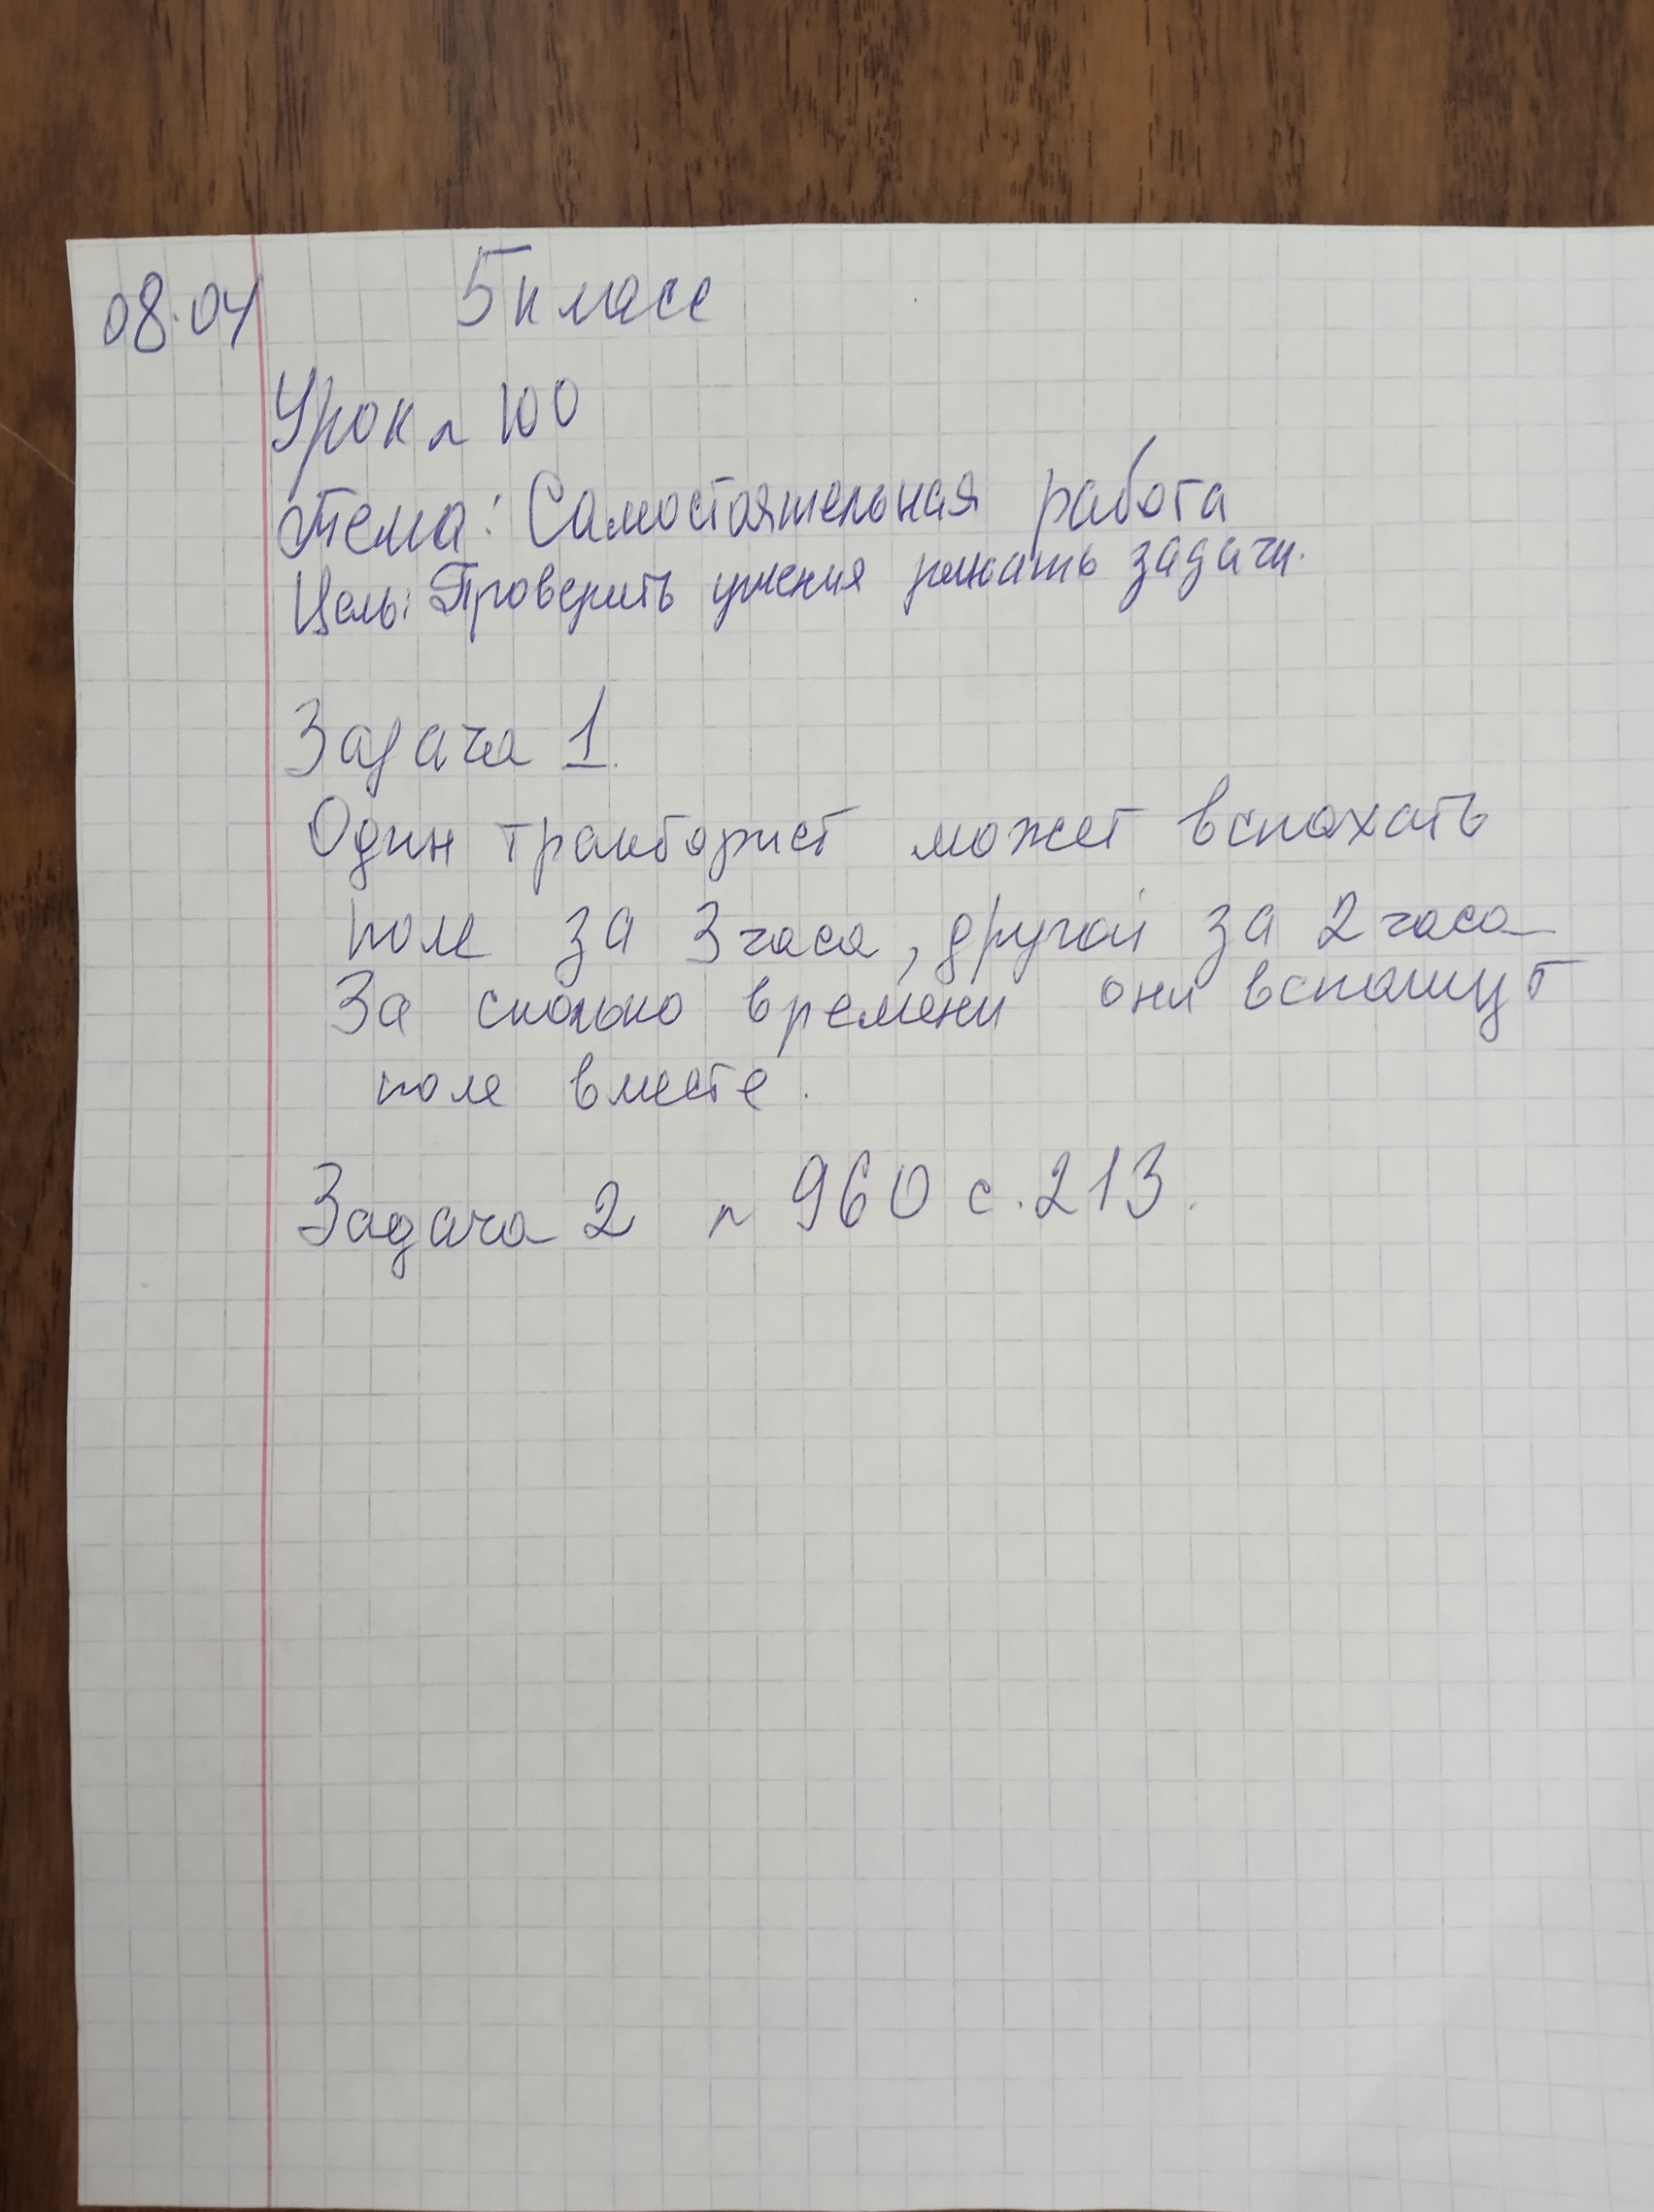 08.04 5 класс
Урок № 100
Тема: Самостоятельная работа
Цель: Проверить умения решать задачи.
Задача 1.
Один тракторист может вспахать
поле за 3 часа, другой за 2 часа
За сколько времени они вспашут
поле вместе.
Задача 2 № 960 с. 213.